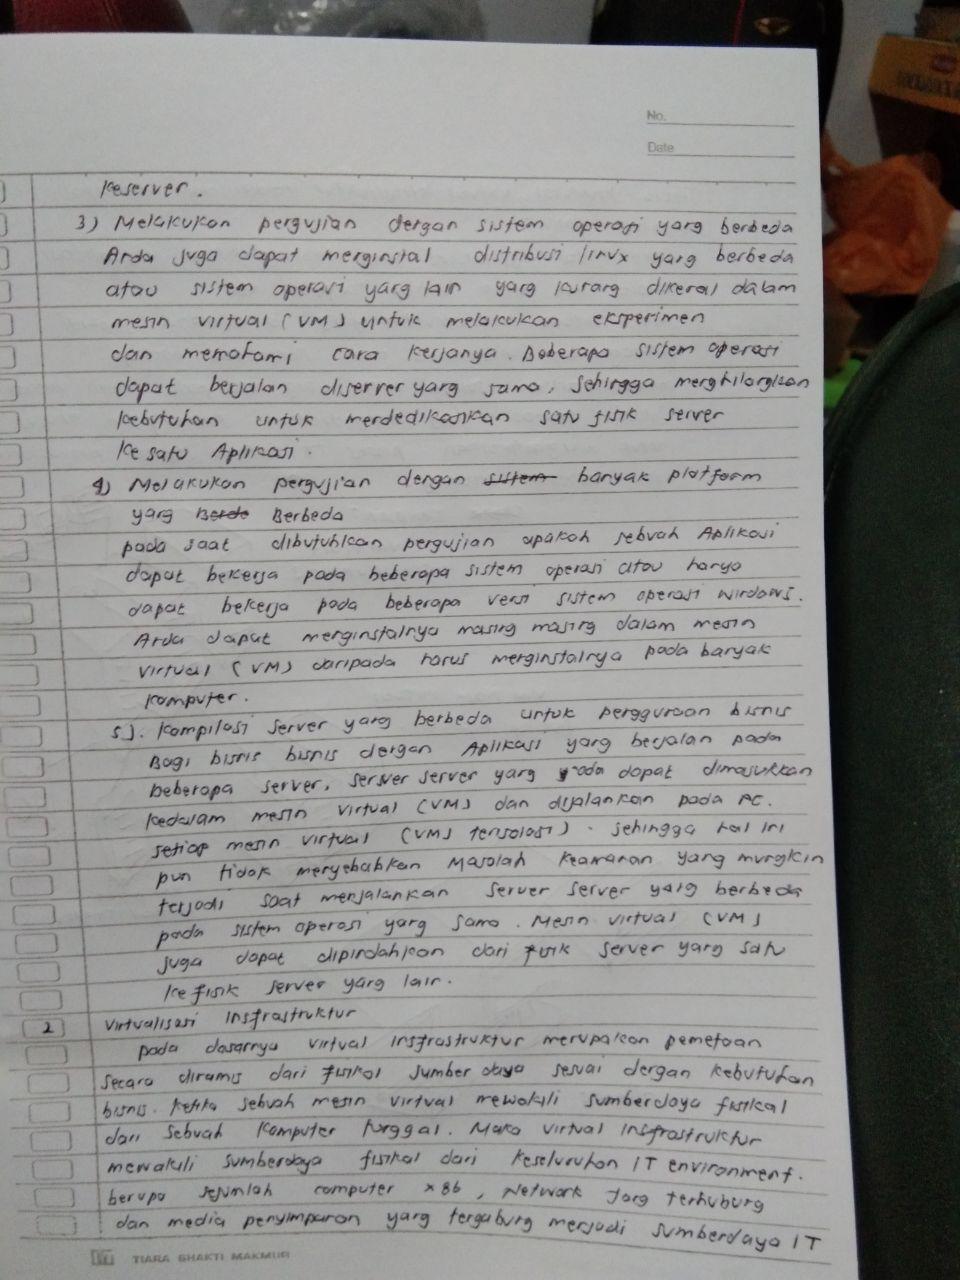 No.
Date
Keserver.
3) Melakukan pergujian dergan sistem operasi yarg berbeda
Arda juga dapat merginstal distribusi linux yarg berbeda
atau sistem operasi yarg lain yarg kurarg dikeral dalam
mesin virtual (VM) untuk melakukan eksperimen
dan memahami cara kerjanya. Beberapa sistem operasi
dapat berjalan diserver yarg sama, sehingga merghilargkan
kebutuhan untuk merdedikasikan satu fisik server
ke satu Aplikasi.
4) Melakukan pergujian dergan sistem banyak platform
yarg Berde Berbeda
pada saat dibutuhkan pergujian apakah sebuah Aplikasi
dapat bekerja pada beberapa sistem operasi atau hanya
dapat bekerja pada beberapa versi sistem operasi windows.
Arda dapat merginstalnya masirg masirg dalam mesin
virtual (VM) daripada harus merginstalnya pada banyak
komputer.
5). Kompilasi server yarg berbeda untuk pergguraan bisnis
Bagi bisnis bisnis dergan Aplikasi yarg berjalan pada
beberapa server, server server yarg yada dapat dimasukkan
kedalam mesin virtual (VM) dan dijalankan pada PC.
setiap mesin virtual (VM) terisolasi). sehingga hal ini
pun tidak menyebabkan Masalah keamaran yang murgkin
terjadi saat menjalankan server server yarg berbeda
pada sistem operasi yarg sama. Mesin virtual (VM)
juga dapat dipindahkan dari fisik server yarg satu
ke fisik server yarg lain.
2 Virtualisasi Insfrastruktur
pada dasarnya virtual insfrastruktur merupakan pemetaan
secara diramis dari fisikal sumber daya sesuai dergan kebutuhan
bisnis. ketika sebuah mesin virtual mewakili sumberdaya fisikal
dari sebuah komputer turggal. Maka virtual insfrastruktur
mewakili sumberdaya fisikal dari keseluruhan IT environment.
berupa sejumlah computer x86, Network yarg terhuburg
dan media penyimparan yarg tergaburg menjadi sumberdaya IT
TIARA BHAKTI MAKMUR